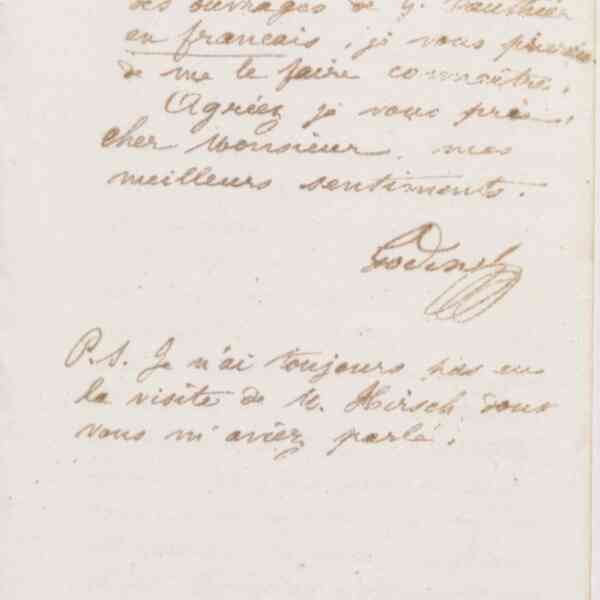 des ouvrages de G. Vauthier
en français, je vous prierais
de me le faire connaître.
Agréez je vous prie,
cher Monsieur, mes
meilleurs sentiments.
Godin
P.S. Je n'ai toujours pas eu
la visite de M. Hirsch dont
vous m'aviez parlé.